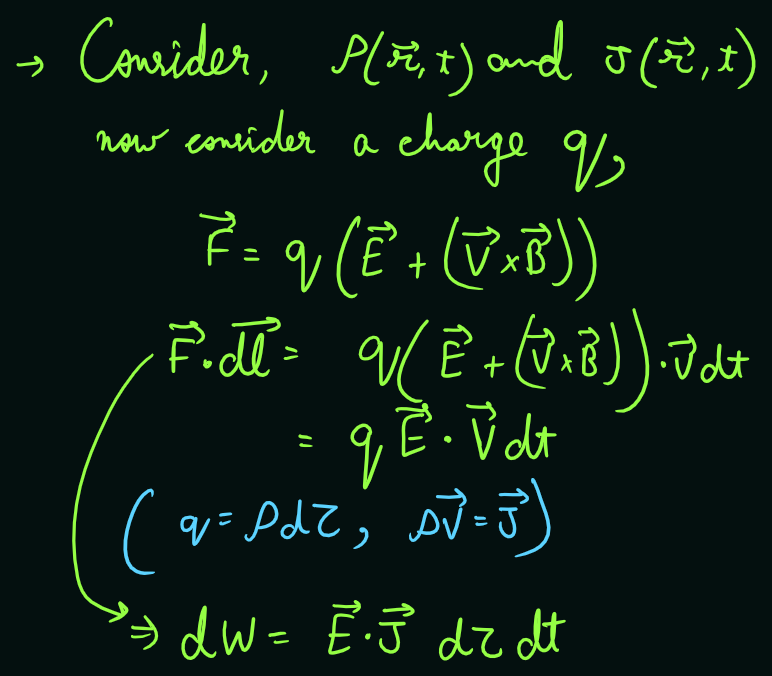 → Consider, ρ(r⃗,t) and J(r⃗,t)
now consider a charge q,
F⃗ = q(E⃗ + (V⃗×B⃗))
F⃗·dl⃗ = q(E⃗ + (V⃗×B⃗))·V⃗dt
= q E⃗·V⃗dt
(q = ρdτ, ρV⃗ = J⃗)
⇒ dW = E⃗·J⃗ dτ dt